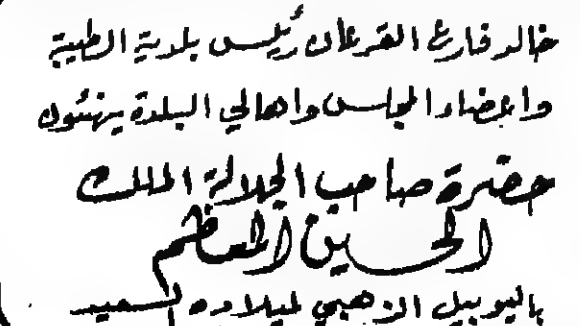 خالد فارع القرعان رئيس بلدية الطيبة
واعضاء المجلس واهالي البلدة يهنئون
حضرة صاحب الجلالة الملك
الحسين المعظم
باليوبيل الذهبي لميلاده السعيد